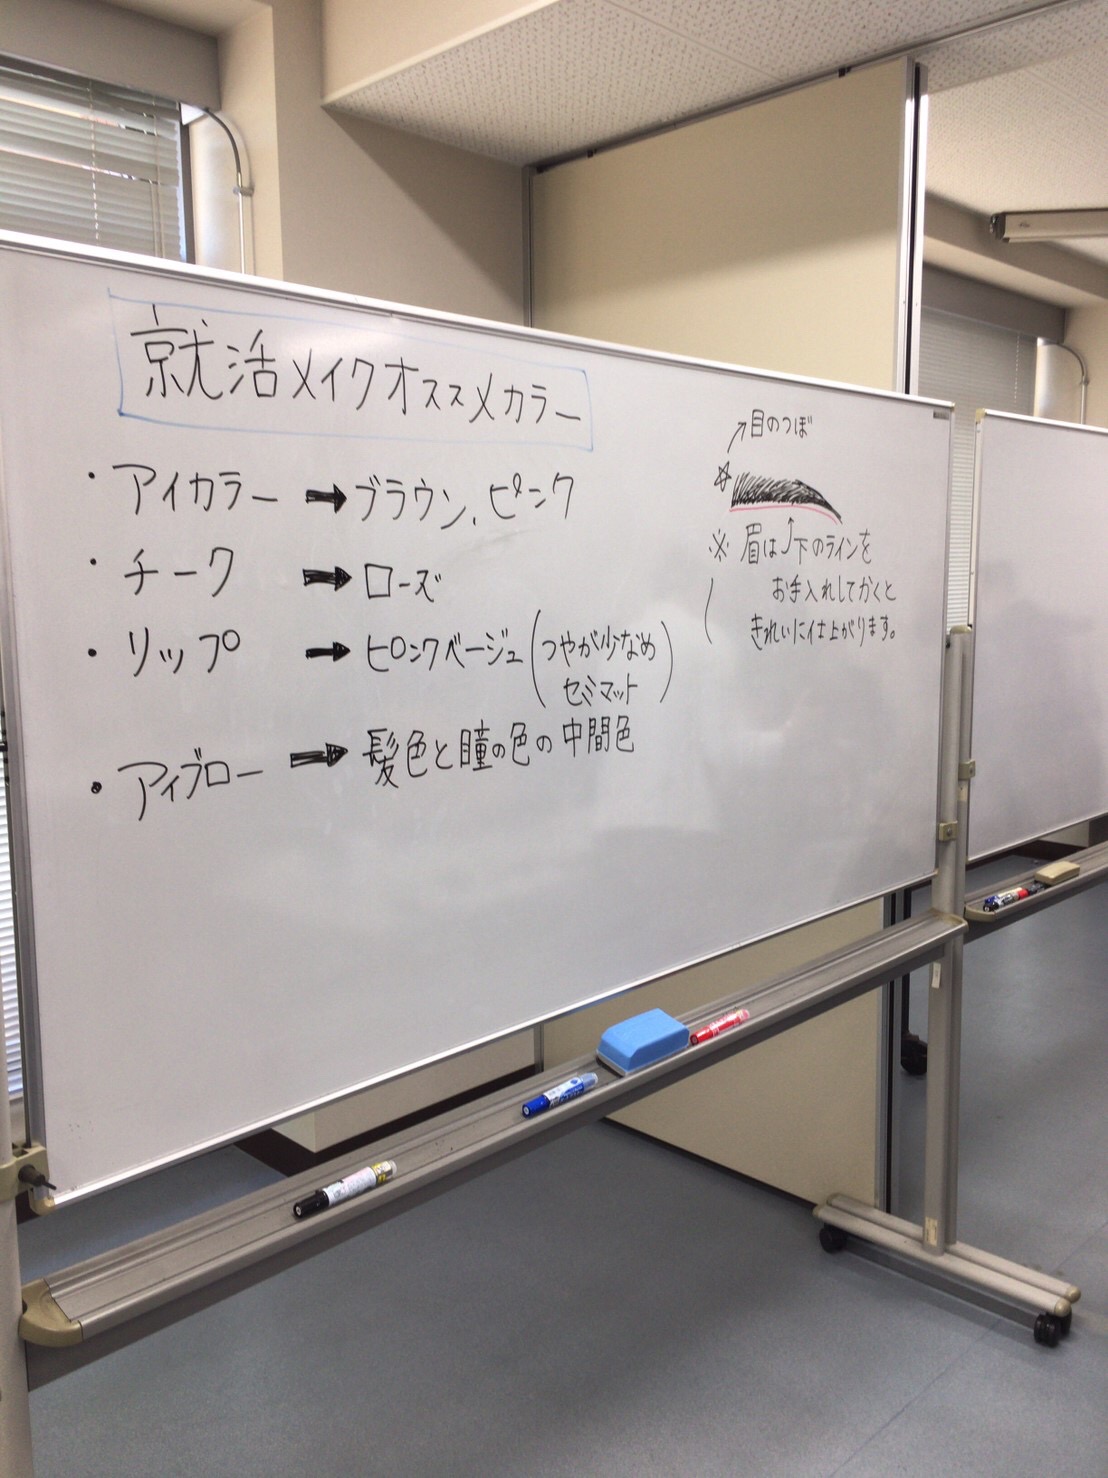 就活メイクオススメカラー
・アイカラー ➡ ブラウン、ピンク
・チーク ➡ ローズ
・リップ ➡ ピンクベージュ(つやが少なめ
セミマット)
・アイブロー ➡ 髪色と瞳の色の中間色
↗目のつぼ
☆
※ 眉は↑下のラインを
お手入れしてかくと
きれいに仕上がります。